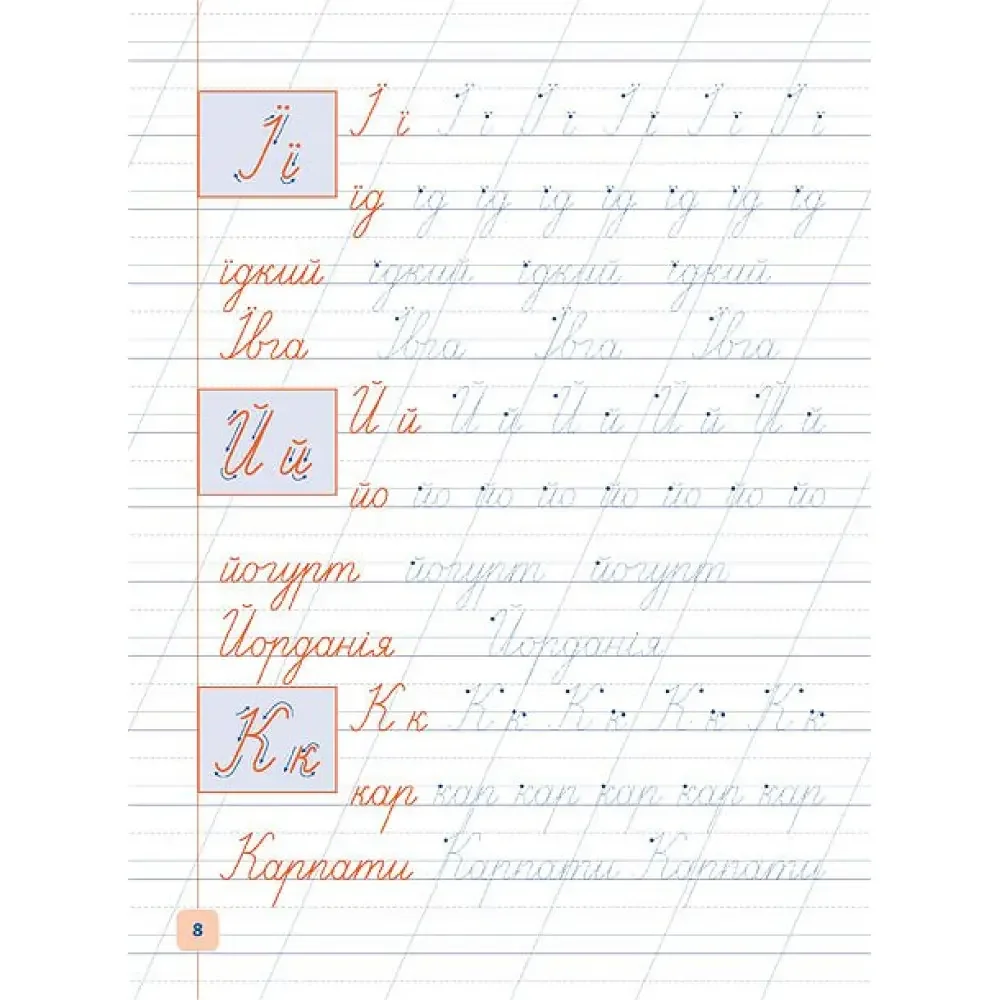 Ї ї Ї ї Ї ї Ї ї Ї ї Ї ї Ї ї
їд їд їд їд їд їд їд їд
їдкий їдкий їдкий їдкий
Ївга Ївга Ївга Ївга
Й й Й й Й й Й й Й й Й й
йо йо йо йо йо йо йо йо
йогурт йогурт йогурт
Йорданія Йорданія
К к К к К к К к К к К к
кар кар кар кар кар кар
Карпати Карпати Карпати
8